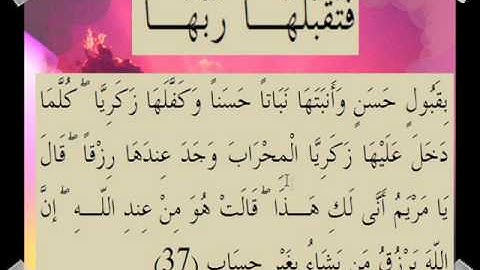 فَتَقَبَّلَهَا رَبُّهَا
بِقَبُولٍ حَسَنٍ وَأَنبَتَهَا نَبَاتاً حَسَناً وَكَفَّلَهَا زَكَرِيَّا ۖ كُلَّمَا
دَخَلَ عَلَيْهَا زَكَرِيَّا الْمِحْرَابَ وَجَدَ عِندَهَا رِزْقاً ۖ قَالَ
يَا مَرْيَمُ أَنَّى لَكِ هَـٰذَا ۖ قَالَتْ هُوَ مِنْ عِندِ اللَّـهِ ۖ إِنَّ
اللَّهَ يَرْزُقُ مَن يَشَاءُ بِغَيْرِ حِسَابٍ (37)